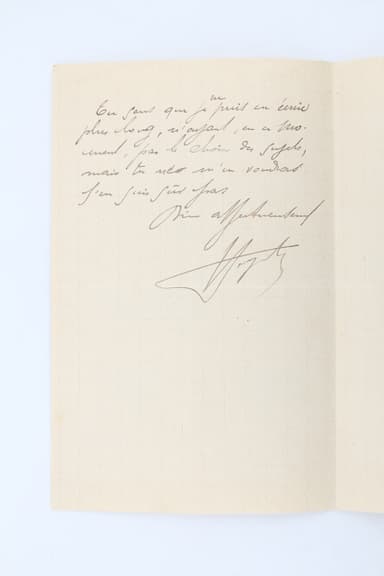 Tu sais que je ne puis en écrire
plus long, n'ayant, en ce mo-
ment, pas le choix des sujets,
mais tu ne m'en voudras
j'en suis sûr pas
Bien affectueusement